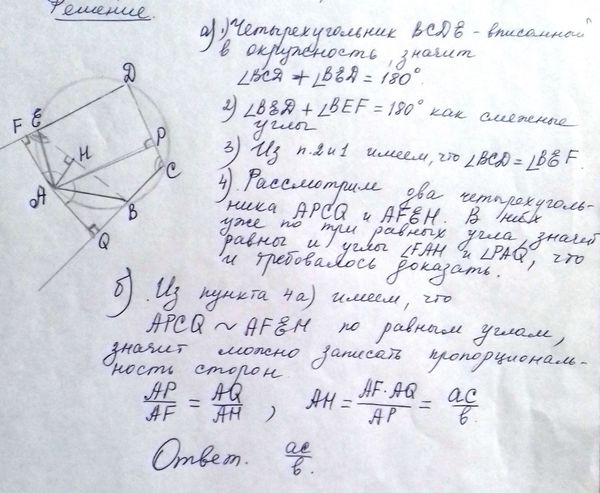 Решение.
а) 1) Четырехугольник BCDE - вписанный
в окружность, значит
∠BCD + ∠BED = 180°.
2) ∠BED + ∠BEF = 180° как смежные
углы
3) Из п. 2 и 1 имеем, что ∠BCD = ∠BEF.
4). Рассмотрим два четырехуголь-
ника APCQ и AFEH. В них
уже по три равных угла, значит
равны и углы ∠FAH и ∠PAQ, что
и требовалось доказать.
D
F E
H
P
C
A
B
Q
б) Из пункта 4а) имеем, что
APCQ ~ AFEH по равным углам,
значит можно записать пропорциональ-
ность сторон.
AP/AF = AQ/AH, AH = AF·AQ/AP = ac/b.
Ответ. ac/b.